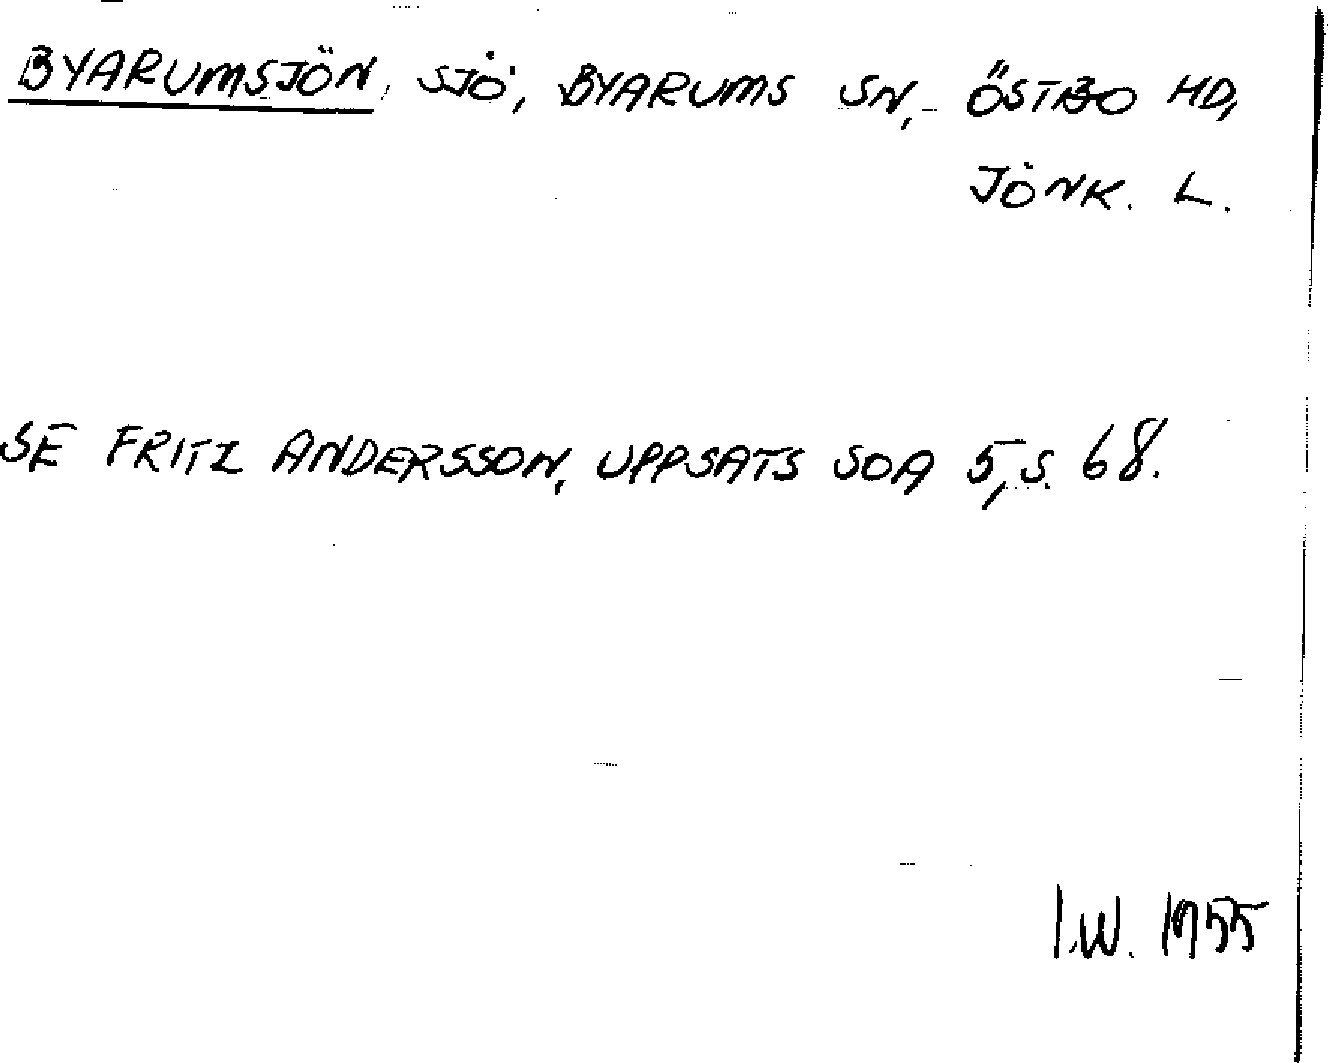 BYARUMSJÖN, SJÖ, BYARUMS SN, ÖSTBO HD,
JÖNK. L.
SE FRITZ ANDERSSON, UPPSATS SOA 5, S. 68.
I.W. 1955